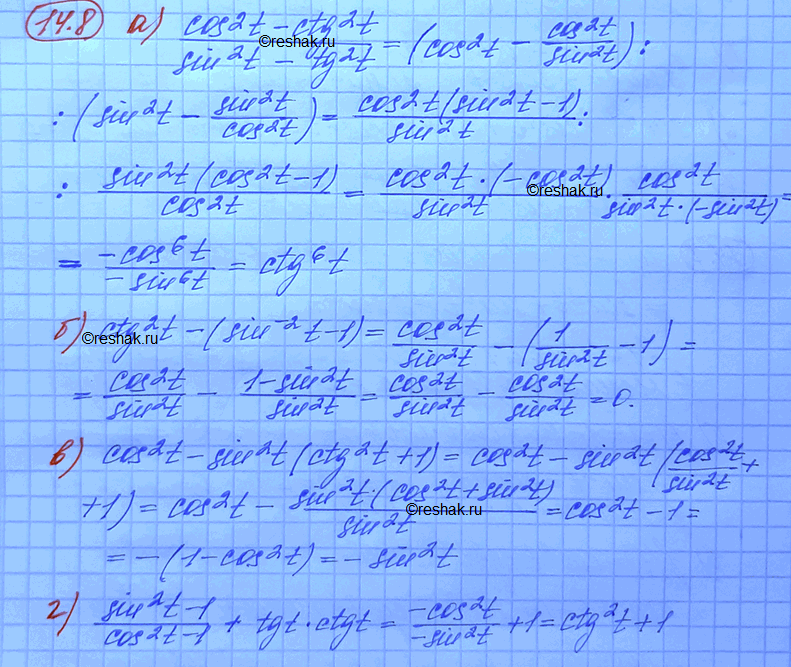 14.8 а) (cos²t - ctg²t)/(sin²t - tg²t) = (cos²t - cos²t/sin²t) :
©reshak.ru
: (sin²t - sin²t/cos²t) = cos²t(sin²t-1)/sin²t :
: sin²t(cos²t-1)/cos²t = cos²t·(-cos²t)/sin²t · cos²t/sin²t·(-sin²t) =
©reshak.ru
= -cos⁶t/-sin⁶t = ctg⁶t
б) ctg²t - (sin⁻²t-1) = cos²t/sin²t - (1/sin²t - 1) =
©reshak.ru
= cos²t/sin²t - 1-sin²t/sin²t = cos²t/sin²t - cos²t/sin²t = 0.
в) cos²t - sin²t(ctg²t+1) = cos²t - sin²t(cos²t/sin²t +
+1) = cos²t - sin²t·(cos²t+sin²t)/sin²t = cos²t - 1 =
©reshak.ru
= -(1-cos²t) = -sin²t
г) sin²t-1/cos²t-1 + tgt·ctgt = -cos²t/-sin²t + 1 = ctg²t+1